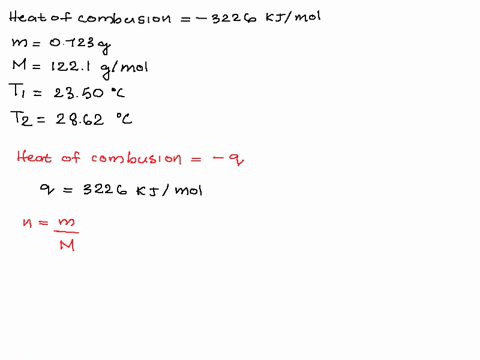 Heat of combusion = -3226 KJ/mol
m = 0.723g
M = 122.1 g/mol
T1 = 23.50 °C
T2 = 28.62 °C
Heat of combusion = -q
q = 3226 KJ/mol
n = m
M